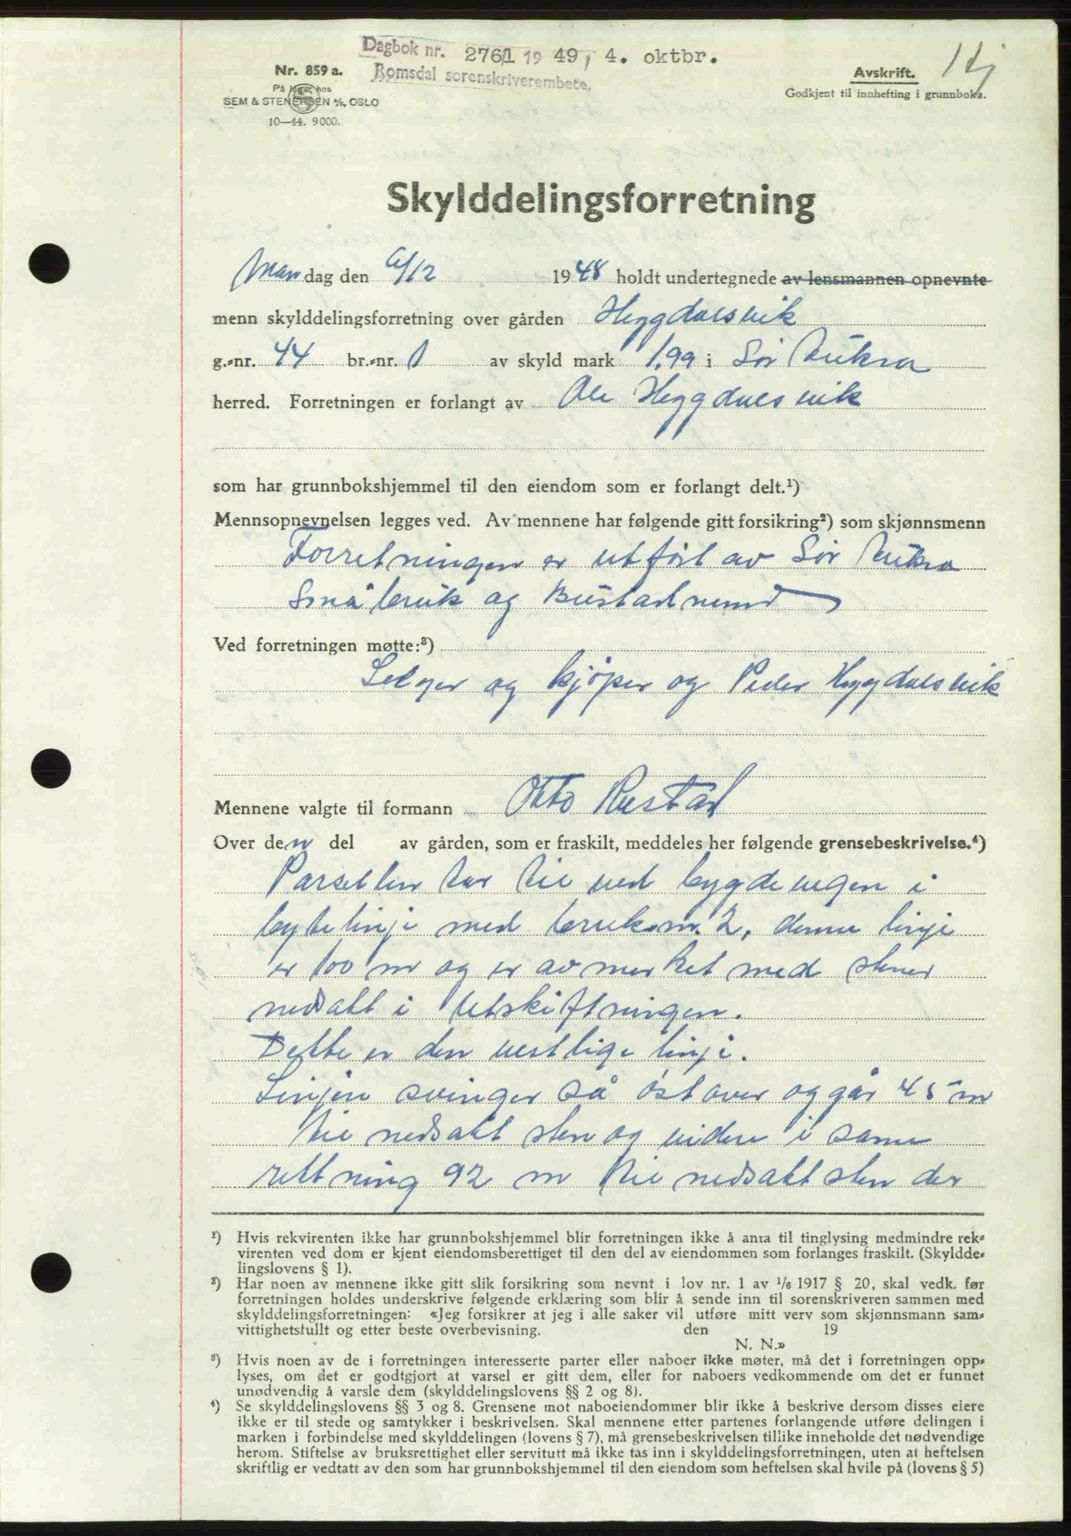 Dagbok nr. 2761 1949, 4. oktbr.
Romsdal sorenskriverembete.
Nr. 859 a.
På lager hos
SEM & STENERSEN A/S, OSLO
10—44. 9000.
Avskrift.
Godkjent til innhefting i grunnboka.
Skylddelingsforretning
Mandag den 6/12 1948 holdt undertegnede av lensmannen opnevnte
menn skylddelingsforretning over gården Heggdalsvik
g.-nr. 44 br.-nr. 1 av skyld mark 1,99 i Sør Aukra
herred. Forretningen er forlangt av Ole Heggdalsvik
som har grunnbokshjemmel til den eiendom som er forlangt delt.¹)
Mennsopnevnelsen legges ved. Av mennene har følgende gitt forsikring²) som skjønnsmenn
Forretningen er utført av Sør Aukra
Småbruk og Bustadnemd
Ved forretningen møtte:³)
Selger og kjøper og Peder Heggdalsvik
Mennene valgte til formann Otto Restad
Over den del av gården, som er fraskilt, meddeles her følgende grensebeskrivelse.⁴)
Parsellen tar til ved bygdevegen i
bytelinje med bruksnr. 2, denne linje
er 100 m og er avmerket med stener
nedsatt i Utskiftningen.
Dette er den vestlige linje.
Linjen svinger så østover og går 45 m
til nedsatt sten og videre i same
rettning 92 m til nedsatt sten der
¹) Hvis rekvirenten ikke har grunnbokshjemmel blir forretningen ikke å anta til tinglysing medmindre rek-
virenten ved dom er kjent eiendomsberettiget til den del av eiendommen som forlanges fraskilt. (Skyldde-
lingslovens § 1).
²) Har noen av mennene ikke gitt slik forsikring som nevnt i lov nr. 1 av 1/6 1917 § 20, skal vedk. før
forretningen holdes underskrive følgende erklæring som blir å sende inn til sorenskriveren sammen med
skylddelingsforretningen: «Jeg forsikrer at jeg i alle saker vil utføre mitt verv som skjønnsmann sam-
vittighetsfullt og etter beste overbevisning. den 19
N. N.»
³) Hvis noen av de i forretningen interesserte parter eller naboer ikke møter, må det i forretningen opp-
lyses, om det er godtgjort at varsel er gitt dem, eller for naboers vedkommende om det er funnet
unødvendig å varsle dem (skylddelingslovens §§ 2 og 8).
⁴) Se skylddelingslovens §§ 3 og 8. Grensene mot naboeiendommer blir ikke å beskrive dersom disses eiere
ikke er til stede og samtykker i beskrivelsen. Skal mennene etter partenes forlangende utføre delingen i
marken i forbindelse med skylddelingen (lovens § 7), må grensebeskrivelsen tillike inneholde det nødvendige
herom. Stiftelse av bruksrettighet eller servitutt må ikke tas inn i skylddelingsforretningen, uten at heftelsen
skriftlig er vedtatt av den som har grunnbokshjemmel til den eiendom som heftelsen skal hvile på (lovens § 5)